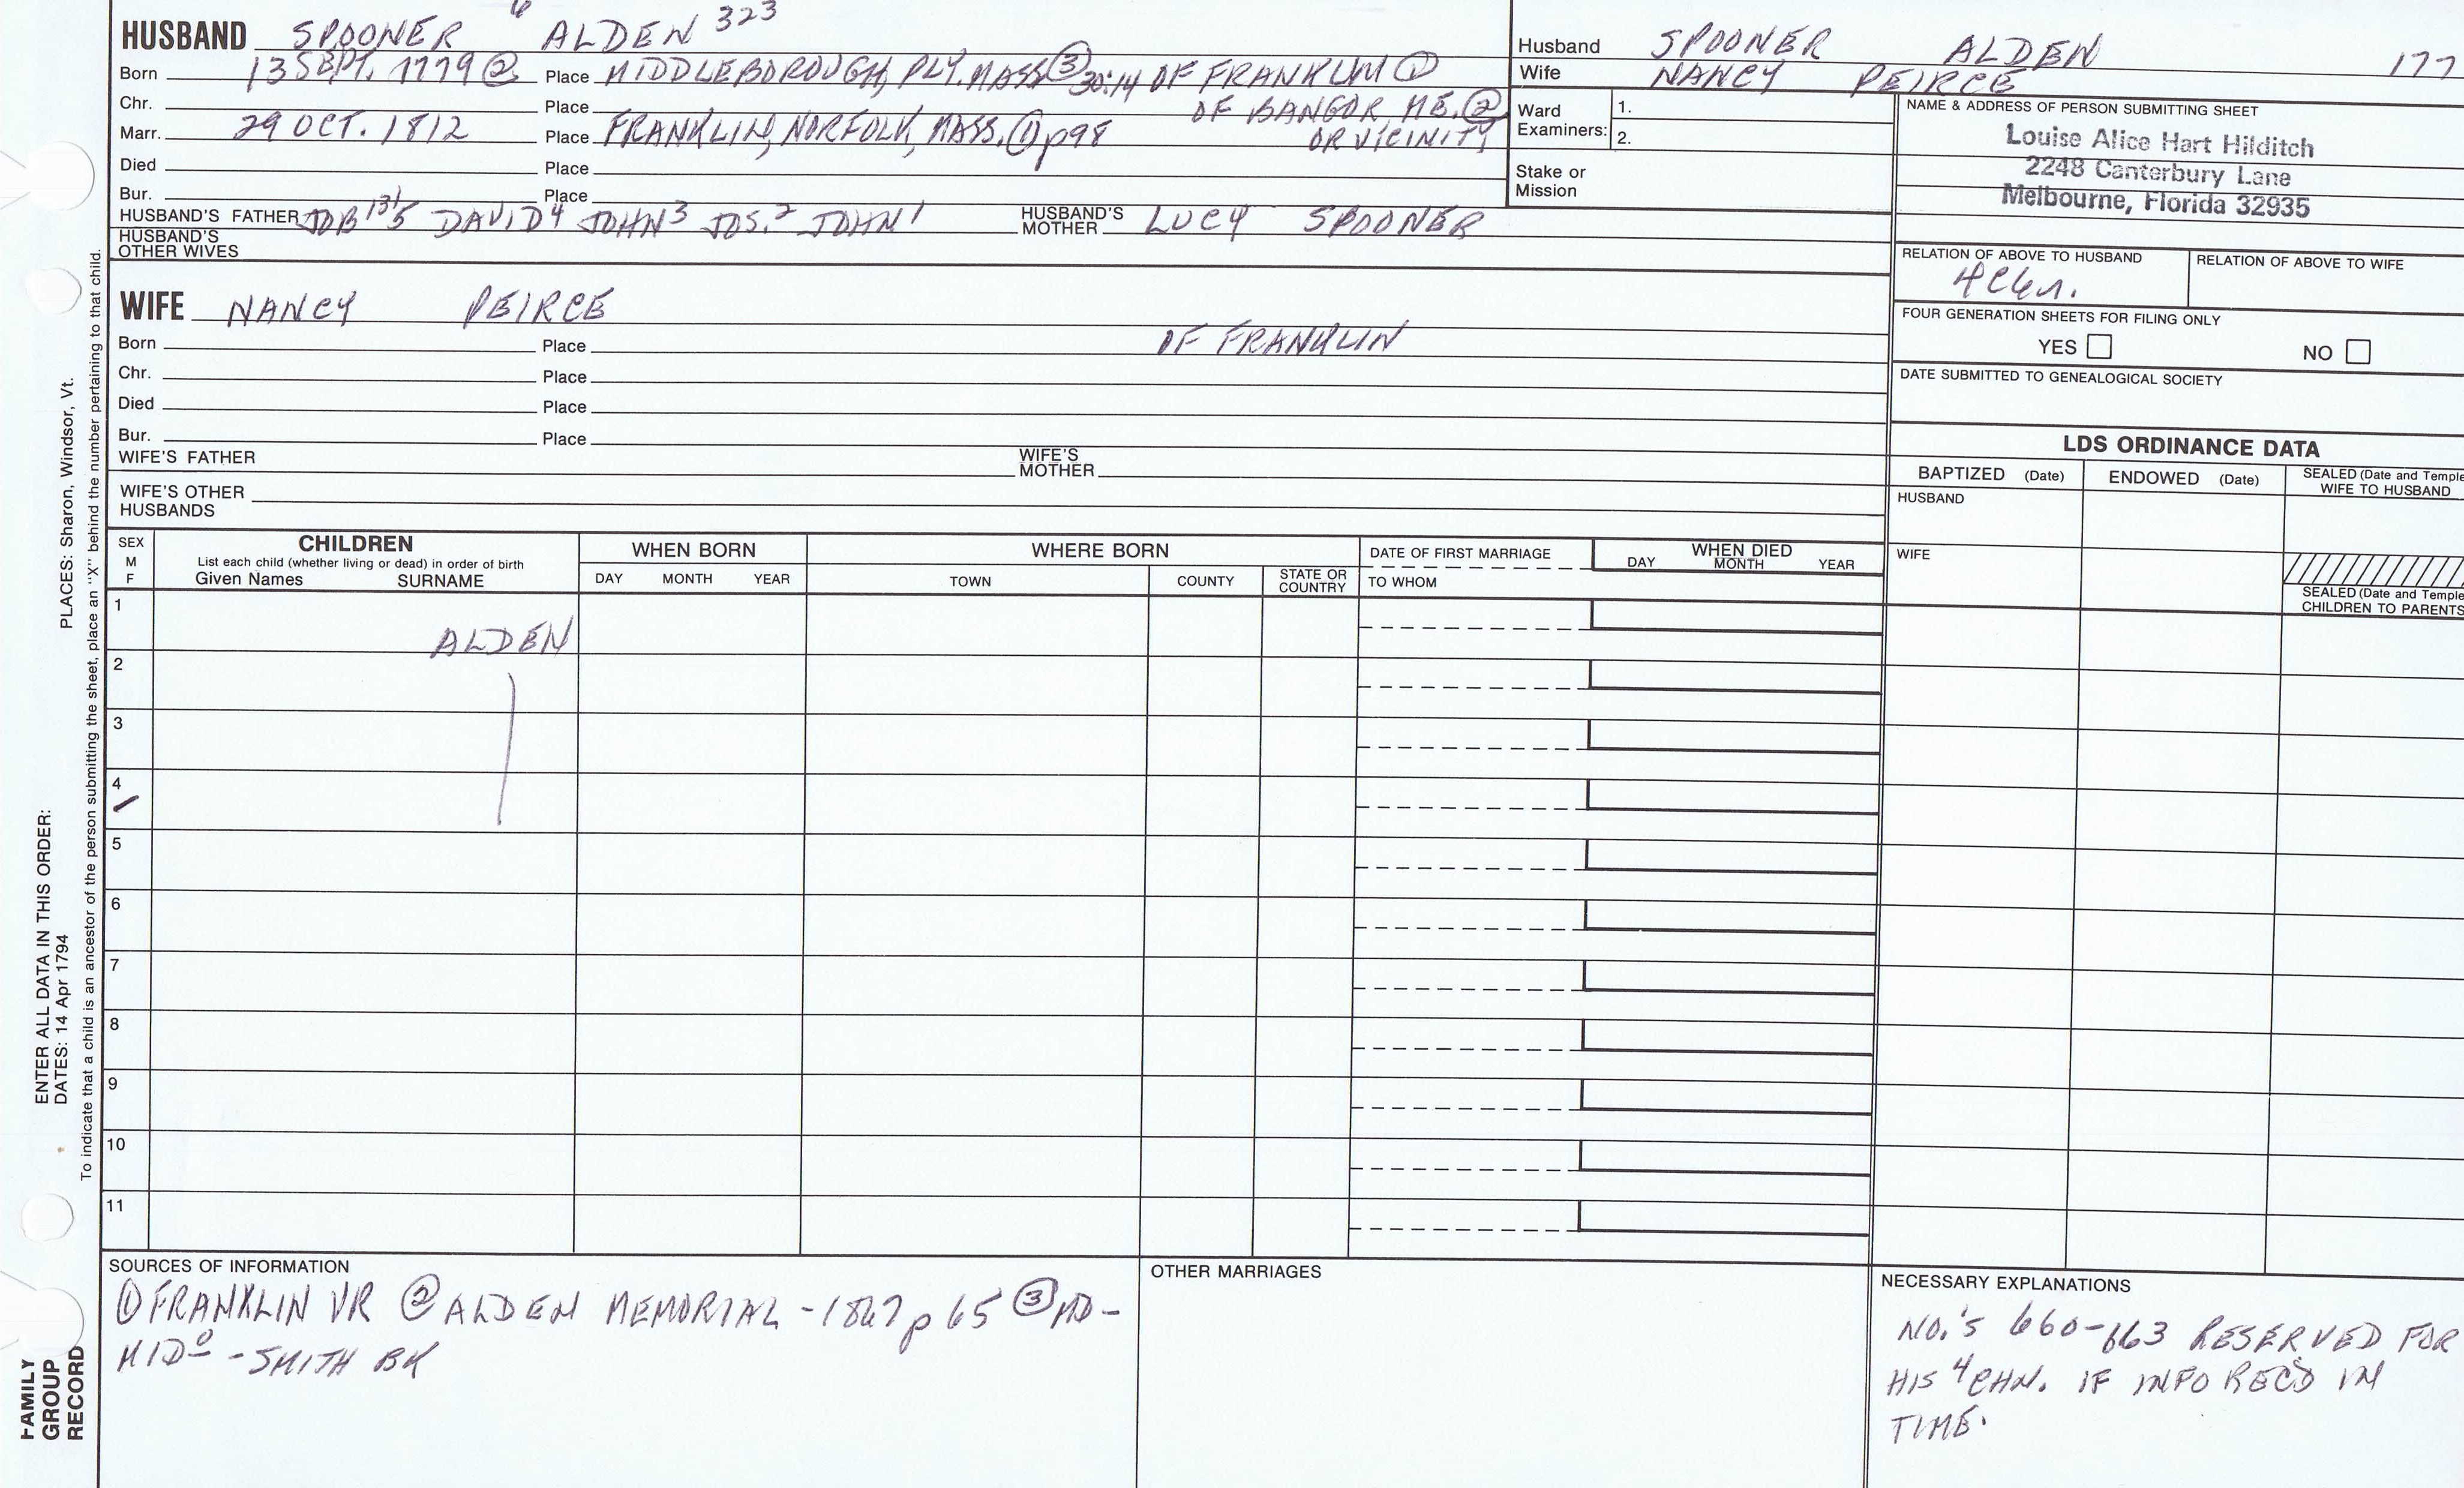 HUSBAND SPOONER 6 ALDEN 323
Born 13 SEPT. 1779 ② Place MIDDLEBOROUGH, PLY. MASS ③ 30:14 OF FRANKLIN ①
Chr. Place OF BANGOR, ME. ②
Marr. 29 OCT. 1812 Place FRANKLIN, NORFOLK, MASS. ① p98 OR VICINITY
Died Place
Bur. Place
HUSBAND'S FATHER JOB 131 5 DAVID 4 JOHN 3 JOS. 2 JOHN 1 HUSBAND'S MOTHER LUCY SPOONER
HUSBAND'S OTHER WIVES
WIFE NANCY PEIRCE
Born Place OF FRANKLIN
Chr. Place
Died Place
Bur. Place
WIFE'S FATHER WIFE'S MOTHER
WIFE'S OTHER HUSBANDS
Husband SPOONER ALDEN 177
Wife NANCY PEIRCE
Ward Examiners: 1.
2.
Stake or Mission
NAME & ADDRESS OF PERSON SUBMITTING SHEET
Louise Alice Hart Hilditch
2248 Canterbury Lane
Melbourne, Florida 32935
RELATION OF ABOVE TO HUSBAND RELATION OF ABOVE TO WIFE
FOUR GENERATION SHEETS FOR FILING ONLY
YES NO
DATE SUBMITTED TO GENEALOGICAL SOCIETY
LDS ORDINANCE DATA
BAPTIZED (Date) ENDOWED (Date) SEALED (Date and Temple
WIFE TO HUSBAND
HUSBAND
WIFE
SEALED (Date and Temple
CHILDREN TO PARENTS
SEX
M
F
CHILDREN
List each child (whether living or dead) in order of birth
Given Names SURNAME
WHEN BORN
DAY MONTH YEAR
WHERE BORN
TOWN COUNTY STATE OR COUNTRY
DATE OF FIRST MARRIAGE
TO WHOM
WHEN DIED
DAY MONTH YEAR
1 ALDEN
2
3
4
5
6
7
8
9
10
11
SOURCES OF INFORMATION
① FRANKLIN VR ② ALDEN MEMORIAL - 1867 p 65 ③ MD -
MIDº - SMITH BK
OTHER MARRIAGES
NECESSARY EXPLANATIONS
NO.'S 660-663 RESERVED FOR
HIS 4 CHN. IF INFO REC'D IN
TIME.
PLACES: Sharon, Windsor, Vt.
ENTER ALL DATA IN THIS ORDER:
DATES: 14 Apr 1794
To indicate that a child is an ancestor of the person submitting the sheet, place an "X" behind the number pertaining to that child.
FAMILY
GROUP
RECORD